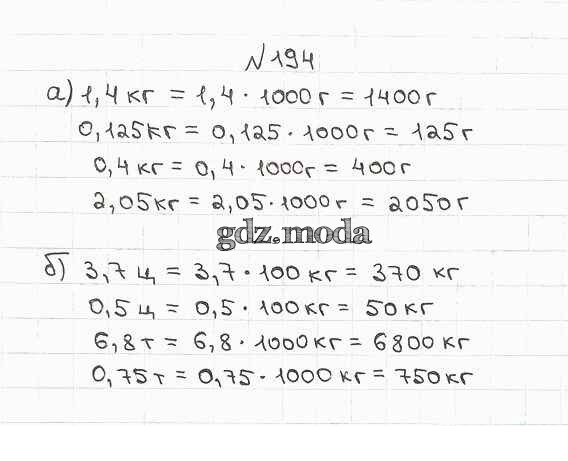 №194
а) 1,4 кг = 1,4 · 1000 г = 1400 г
0,125 кг = 0,125 · 1000 г = 125 г
0,4 кг = 0,4 · 1000 г = 400 г
2,05 кг = 2,05 · 1000 г = 2050 г
gdz.moda
б) 3,7 ц = 3,7 · 100 кг = 370 кг
0,5 ц = 0,5 · 100 кг = 50 кг
6,8 т = 6,8 · 1000 кг = 6800 кг
0,75 т = 0,75 · 1000 кг = 750 кг